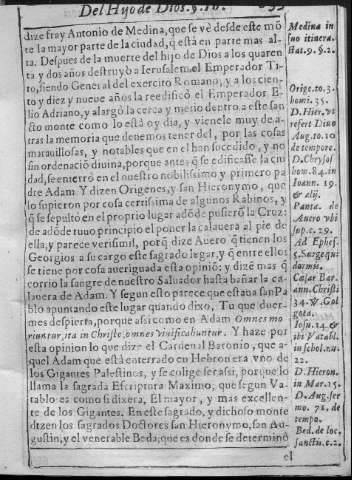 Del Hijo de Dios. §. 10.
dize fray Antonio de Medina, que se vè desde este mõ
te la mayor parte de la ciudad, q̃ está en parte mas al-
ta. Despues de la muerte del hijo de Dios a los quaren
ta y dos años destruyò a Ierusalem el Emperador Ti-
to, siendo General del exercito Romano, y a los cien-
to y diez y nueve años la reedificò el Emperador E-
lio Adriano, y alargò la cerca y metio dentro a este san
cto monte como lo està oy dia, y vienele muy de a-
tras la memoria que devemos tener del, por las cosas
maravillosas, y notables que en el han sucedido, y no
sin ordenaciõ divina, porque antes q̃ se edificasse la ciu
dad, se enterrò en el nuestro nobilissimo y primero pa
dre Adam. Y dizen Origines, y san Hieronymo, que
lo supieron por cosa certissima de algunos Rabinos, y
q̃ se sepultò en el proprio lugar adõde pusierõ la Cruz:
de adõde tuuo principio el poner la calauera al pie de
ella, y parece verisimil, porq̃ dize Auero q̃ tienen los
Georgios a su cargo este sagrado lugar, y q̃ entre ellos
se tiene por cosa aueriguada esta opiniõ; y dize mas q̃
corrio la sangre de nuestro Saluador hasta bañar la ca-
lauera de Adam. Y segun esto parece que estaua san Pa
blo apuntando este lugar quando dixo, Tu que duer-
mes despierta, porque assi como en Adam Omnes mo
riuntur, ita in Christo omnes viuificabuntur. Y haze por
esta opinion lo que dize el Cardenal Baronio, que a-
quel Adam que està enterrado en Hebron era vno de
los Gigantes Palestinos, y se colige ser assi, porque lo
llama la sagrada Escriptura Maximo, que segun Va-
tablo es como si dixera, El mayor, y mas excellen-
te de los Gigantes. En este sagrado, y dichoso monte
dizen los sagrados Doctores san Hieronymo, san Au-
gustin, y el venerable Beda, que es donde se determinò
el
Medina in
suo itinera.
stat. 9. §. 2.
Orige. to. 3.
homi. 35.
D. Hier. vt
refert Diuo
Aug. to. 10
de tempore.
D. Chrysos
hom. 84. in
Ioann. 19.
& alij.
Panta. de
Auero vbi
sup. c. 29.
Ad Ephes.
5. Surge qui
dormis.
Cæsar Bar.
ann. Christi
34. & Gol
gota.
Iosu. 14. &
ibi Vatabl.
in schol. nu.
22.
D. Hieron.
in Mar. 15.
D. Aug. ser
mo. 71. de
tempo.
Bed. de loc.
sanctis. c. 2.